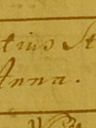 tius St
Anna.